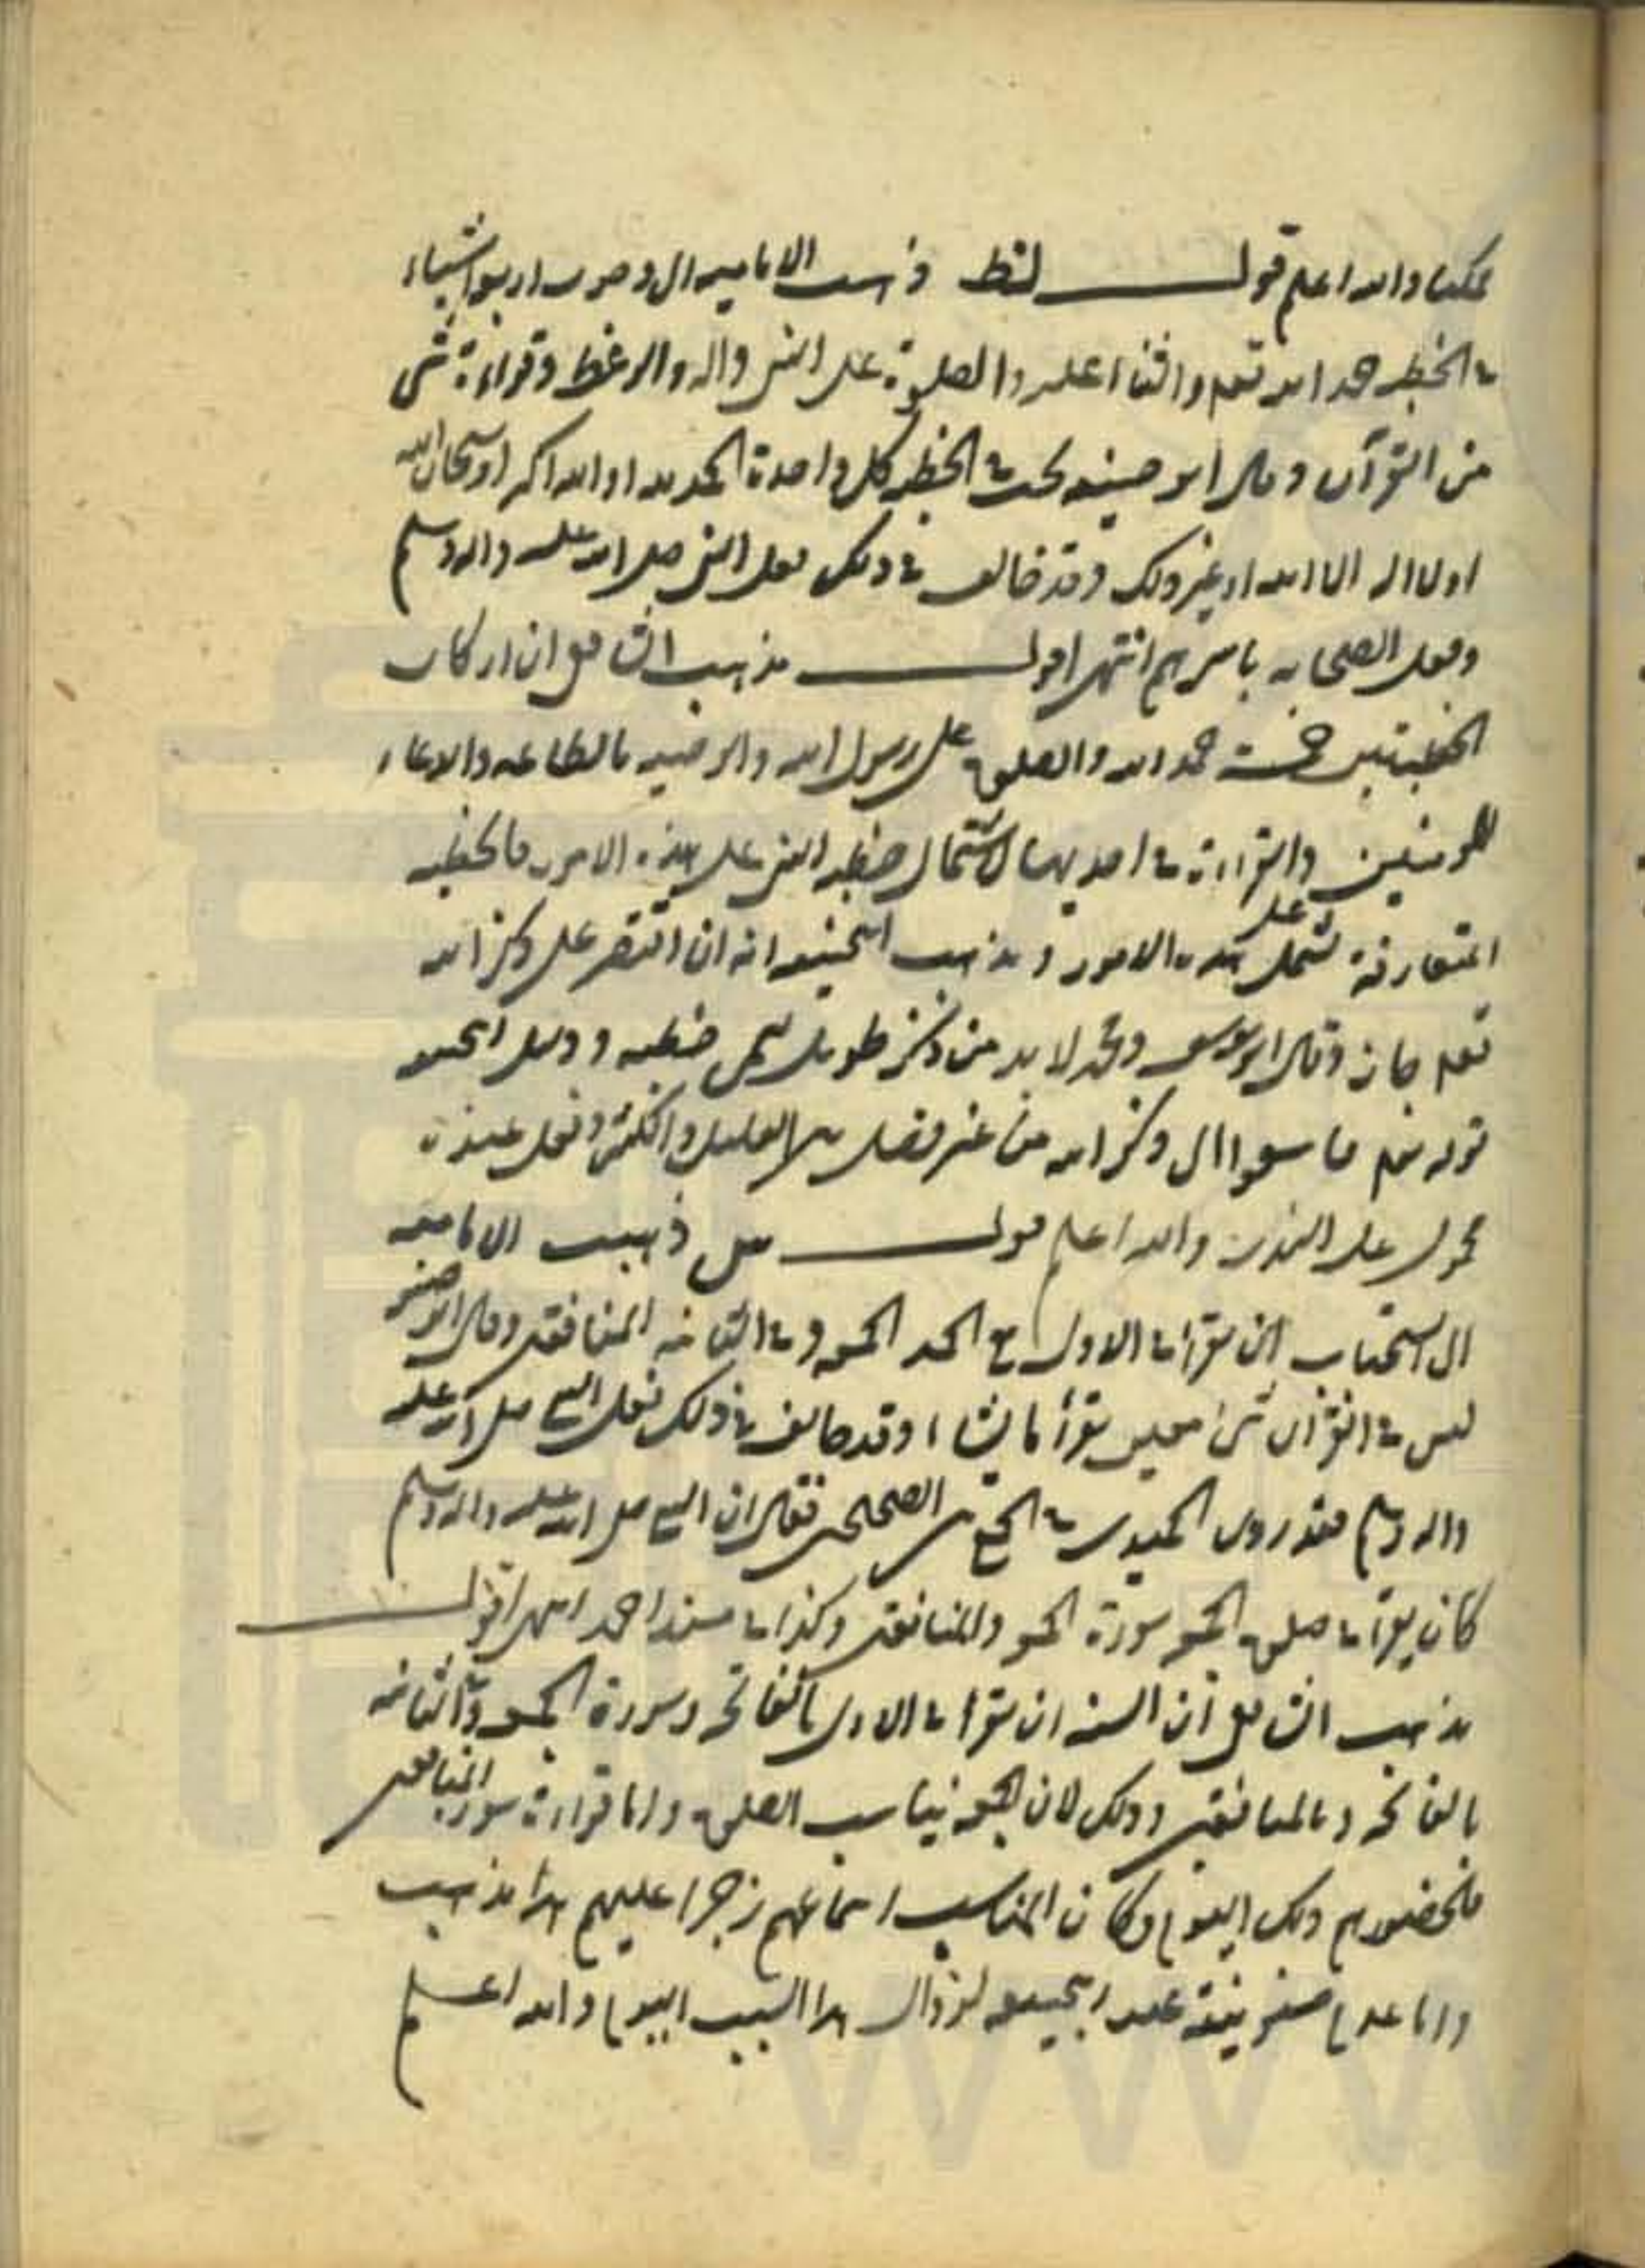 ممكنا والله اعلم قوله لنط ذهبت الامامية الى وجوب اربع اشياء
في الخطبة حمد الله تعالى والثناء عليه والصلوة على النبي وآله والوعظ وقراءة شئ
من القرآن وقال ابو حنيفة يجب في الخطبة كلمة واحدة الحمد لله او الله اكبر او سبحان الله
او لا اله الا الله او غير ذلك وقد خالف في ذلك فعل النبي صلى الله عليه وآله وسلم
وفعل الصحابة باسرهم انتهى اقول مذهب الشافعي ان اركان
الخطبتين خمسة حمد الله والصلوة على رسول الله والوصية بالطاعة والدعاء
للمؤمنين والقراءة في احديهما لاشتمال خطبة النبي على هذه الامور فالخطبة
المتعارفة تشتمل على هذه الامور ومذهب ابي حنيفة انه ان اقتصر على ذكر الله
تعالى جاز وقال ابو يوسف ومحمد لا بد من ذكر طويل يسمى خطبة ودليل ابي حنيفة
قوله تعالى فاسعوا الى ذكر الله من غير فصل بين القليل والكثير وفعل عنده
محمول على الندب والله اعلم قوله مل ذهبت الامامية
الى استحباب ان يقرأ في الاولى مع الحمد الجمعة وفي الثانية المنافقين وقال ابو حنيفة
ليس في القرآن شئ معين يقرأ ما يشاء وقد خالف في ذلك فعل النبي صلى الله عليه
وآله وسلم فقد روى الحميدي في الجمع بين الصحيحين فقال ان النبي صلى الله عليه وآله وسلم
كان يقرأ في صلوة الجمعة سورة الجمعة والمنافقين وكذا في مسند احمد انتهى اقول
مذهب الشافعي ان السنة ان يقرأ في الاولى بالفاتحة وسورة الجمعة وفي الثانية
بالفاتحة وبالمنافقين وذلك لان الجمعة يناسب الصلوة واما قراءة سورة المنافقين
فلحضورهم ذلك اليوم وكان المناسب اسماعهم زجرا عليهم هذا مذهب
واما عدم عند ابي حنيفة لزوال هذا السبب اليوم والله اعلم